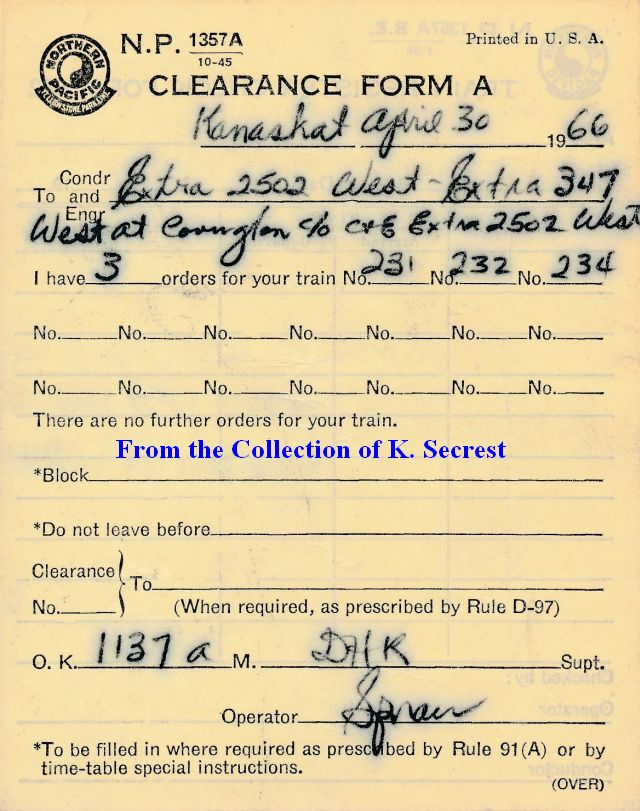 NORTHERN PACIFIC
YELLOWSTONE PARK LINE
N.P. 1357A
10-45
Printed in U. S. A.
CLEARANCE FORM A
Kanaskat April 30 1966
To Condr and Engr Extra 2502 West - Extra 347
West at Covington c/o C+E Extra 2502 West
I have 3 orders for your train No. 231 No. 232 No. 234
No. No. No. No. No. No. No.
No. No. No. No. No. No. No.
There are no further orders for your train.
From the Collection of K. Secrest
*Block
*Do not leave before
Clearance No. To
(When required, as prescribed by Rule D-97)
O. K. 1137 a M. DHK Supt.
Operator
*To be filled in where required as prescribed by Rule 91(A) or by
time-table special instructions.
(OVER)